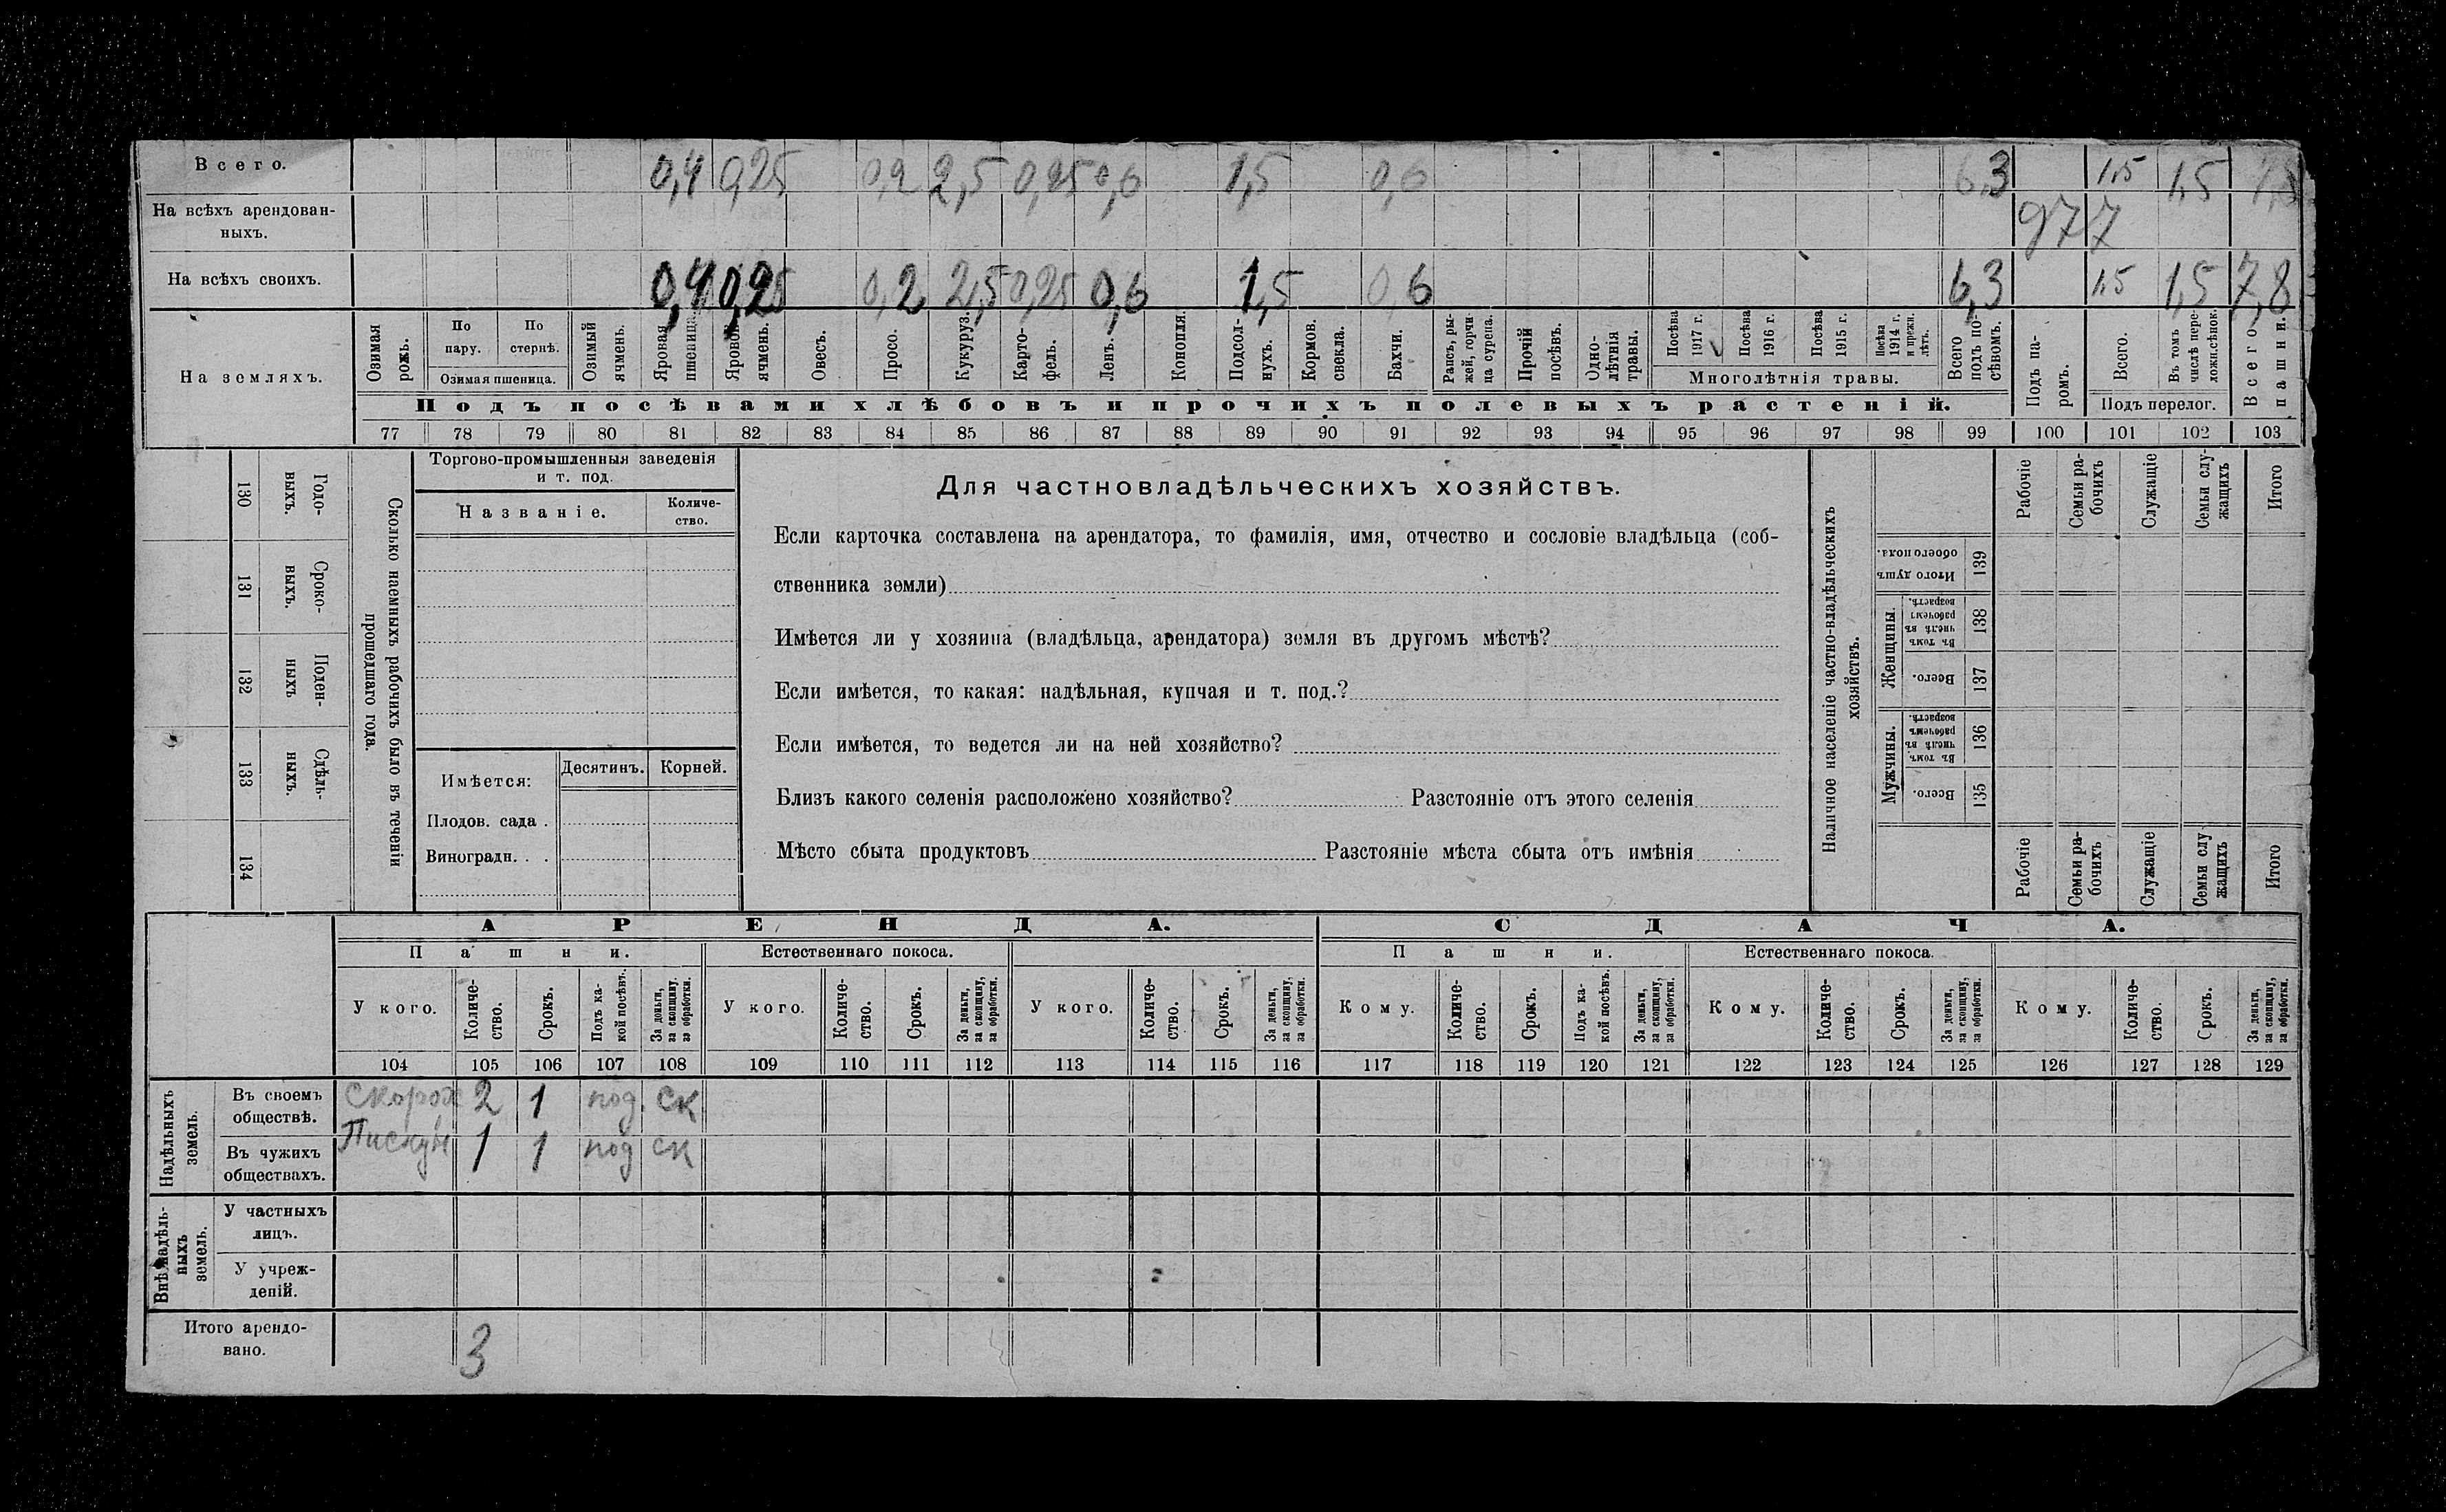 Всего. 0,4 0,25 0,2 2,5 0,25 0,6 1,5 0,6 6,3 1,5 1,5 7,8
На всѣхъ арендован-
ныхъ. 977
На всѣхъ своихъ. 0,4 0,25 0,2 2,5 0,25 0,6 1,5 0,6 6,3 1,5 1,5 7,8
На земляхъ.
Озимая рожь.
По пару.
По стернѣ.
Озимая пшеница.
Озимый ячмень.
Яровая пшеница
Яровой ячмень.
Овесъ.
Просо.
Кукуруз.
Карто-
фель.
Ленъ.
Конопля.
Подсол-
нухъ.
Кормов. свекла.
Бахчи.
Рапсъ, ры-
жей, горчи-
ца сурепа.
Прочій посѣвъ.
Одно-
лѣтнія травы.
Посѣва 1917 г.
Посѣва 1916 г.
Посѣва 1915 г.
Посѣва 1914 г. и прежн. лѣтъ.
Многолѣтнія травы.
Всего подъ по-
сѣвомъ.
Подъ па-
ромъ.
Всего.
Въ томъ числѣ пере-
ложн.сѣнок.
Подъ перелог.
Всего пашни.
Подъ посѣвами хлѣбовъ и прочихъ полевыхъ растеній.
77 78 79 80 81 82 83 84 85 86 87 88 89 90 91 92 93 94 95 96 97 98 99 100 101 102 103
130 Годо-
ныхъ.
131 Сроко-
выхъ.
132 Поден-
ныхъ
133 Сдѣль-
ныхъ.
134
Сколько наемныхъ рабочихъ было въ теченіи
прошедшаго года.
Торгово-промышленныя заведенія
и т. под.
Названіе.
Количе-
ство.
Имѣется:
Десятинъ.
Корней.
Плодов. сада .
Виноградн. . .
Для частновладѣльческихъ хозяйствъ.
Если карточка составлена на арендатора, то фамилія, имя, отчество и сословіе владѣльца (соб-
ственника земли)
Имѣется ли у хозяина (владѣльца, арендатора) земля въ другомъ мѣстѣ?
Если имѣется, то какая: надѣльная, купчая и т. под.?
Если имѣется, то ведется ли на ней хозяйство?
Близъ какого селенія расположено хозяйство? Разстояніе отъ этого селенія
Мѣсто сбыта продуктовъ Разстояніе мѣста сбыта отъ имѣнія
Наличное населеніе частно-владѣльческихъ
хозяйствъ.
Рабочіе
Семьи ра-
бочихъ
Служащіе
Семьи слу-
жащихъ
Итого
Итого душъ обоего пола. 139
Женщины.
Въ томъ числѣ въ рабочемъ возрастѣ. 138
Всего. 137
Мужчины.
Въ томъ числѣ въ рабочемъ возрастѣ. 136
Всего. 135
Рабочіе
Семьи ра-
бочихъ
Служащіе
Семьи слу
жащихъ
Итого
АРЕНДА.
СДАЧА.
Пашни.
Естественнаго покоса.
Пашни.
Естественнаго покоса.
У кого.
Количе-
ство.
Срокъ.
Подъ ка-
кой посѣвъ.
За деньги, за скопщину, за обработки.
У кого.
Количе-
ство.
Срокъ.
За деньги, за скопщину, за обработки.
У кого.
Количе-
ство.
Срокъ.
За деньги, за скопщину, за обработки.
Кому.
Количе-
ство.
Срокъ.
Подъ ка-
кой посѣвъ.
За деньги, за скопщину, за обработки.
Кому.
Количе-
ство.
Срокъ.
За деньги, за скопщину, за обработки.
Кому.
Количе-
ство.
Срокъ.
За деньги, за скопщину, за обработки.
104 105 106 107 108 109 110 111 112 113 114 115 116 117 118 119 120 121 122 123 124 125 126 127 128 129
Надѣльныхъ земель.
Въ своемъ
обществѣ. 2 1 под. ск
Въ чужихъ
обществахъ. 1 1 под ск
Внѣнадѣль-
ныхъ земель.
У частныхъ
лицъ.
У учреж-
деній.
Итого арендо-
вано. 3